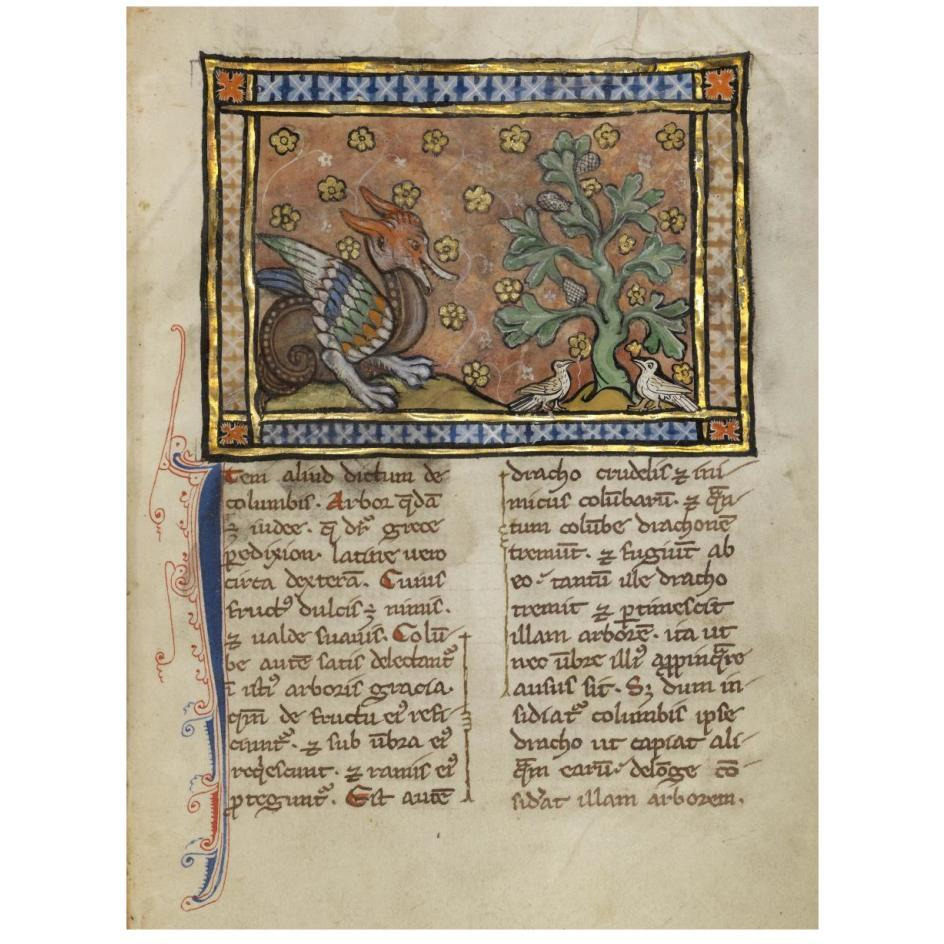 Item aliud dictum de
columbis. Arbor q̄dā
ꝛ indee. q̄ dr̄ grece
ꝑedixion. latine uero
circa dexterā. Cuius
fructꝰ dulcis ꝛ nimis.
ꝛ ualde suauis. Colū-
be autē satis delectantᷣ
ī istiꝰ arboris gracia.
qm̄ de fructu eiꝰ refi-
ciuntᷣ. ꝛ sub ūbra eiꝰ
reqͥescunt. ꝛ ramis eiꝰ
ꝓteguntᷣ. Est autē
dracho crudelis ꝛ ini-
micus colūbarū. ꝛ qͣn-
tum colūbe drachonē
tremūt. ꝛ fugiūt ab
eo. tantū ille dracho
tremit ꝛ ꝑtimescit
illam arborē. ita ut
nec ūbre illiꝰ appinqͣre
ausus sit. Sꝫ dum in-
sidiatᷣ columbis ipse
dracho ut capiat ali-
qͣm earū. delōge cō-
sid̓at illam arborem.